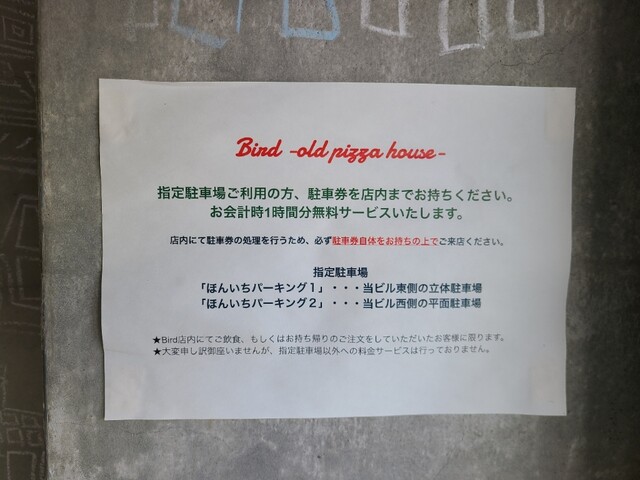 Bird -old pizza house-
指定駐車場ご利用の方、駐車券を店内までお持ちください。
お会計時1時間分無料サービスいたします。
店内にて駐車券の処理を行うため、必ず駐車券自体をお持ちの上でご来店ください。
指定駐車場
「ほんいちパーキング１」・・・当ビル東側の立体駐車場
「ほんいちパーキング２」・・・当ビル西側の平面駐車場
★Bird店内にてご飲食、もしくはお持ち帰りのご注文をしていただいたお客様に限ります。
★大変申し訳御座いませんが、指定駐車場以外への料金サービスは行っておりません。